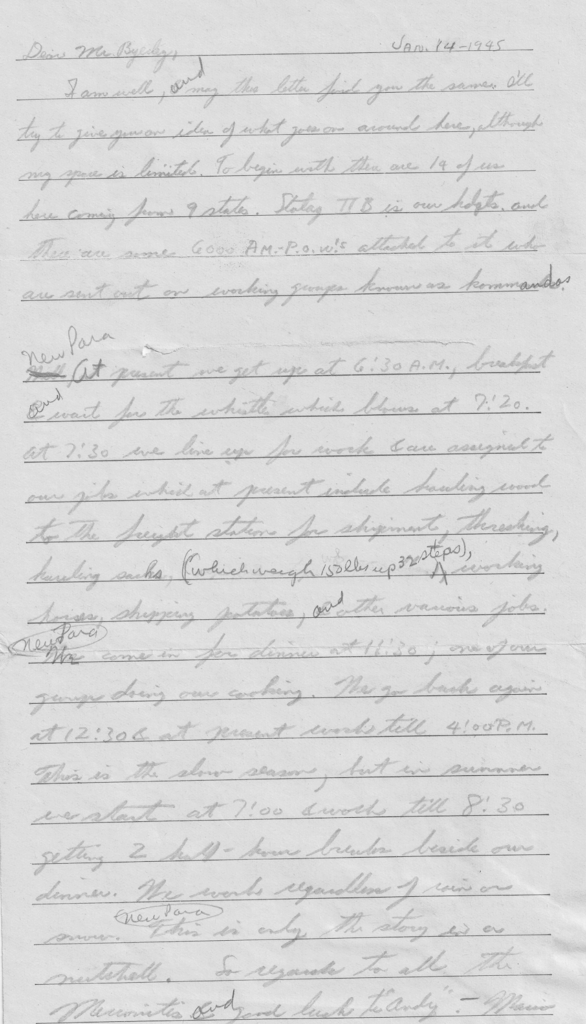 Dear Mr Byerley, Jan. 14-1945
I am well, and may this letter find you the same. I'll
try to give you an idea of what goes on around here, although
my space is limited. To begin with there are 19 of us
here coming from 9 states. Stalag II B is our hdqts. and
there are some 6000 AM.-P.O.W.'s attached to it who
are sent out on working groups known as kommandos.
New Para
At present we get up at 6:30 A.M., breakfast
and wait for the whistle which blows at 7:20.
At 7:30 we line up for work & are assigned to
our jobs which at present include hauling wood
to the freight station for shipment, threshing,
hauling sacks, (which weigh 150 lbs up 32 steps), working
horses, shipping potatoes, and other various jobs.
New Para
We come in for dinner at 11:30; one of our
group doing our cooking. We go back again
at 12:30 & at present work till 4:00 P.M.
This is the slow season, but in summer
we start at 7:00 & work till 8:30
getting 2 half-hour breaks beside our
dinner. We work regardless of rain or
New Para
snow. This is only the story in a
nutshell. So regards to all the
and good luck to "Andy" -